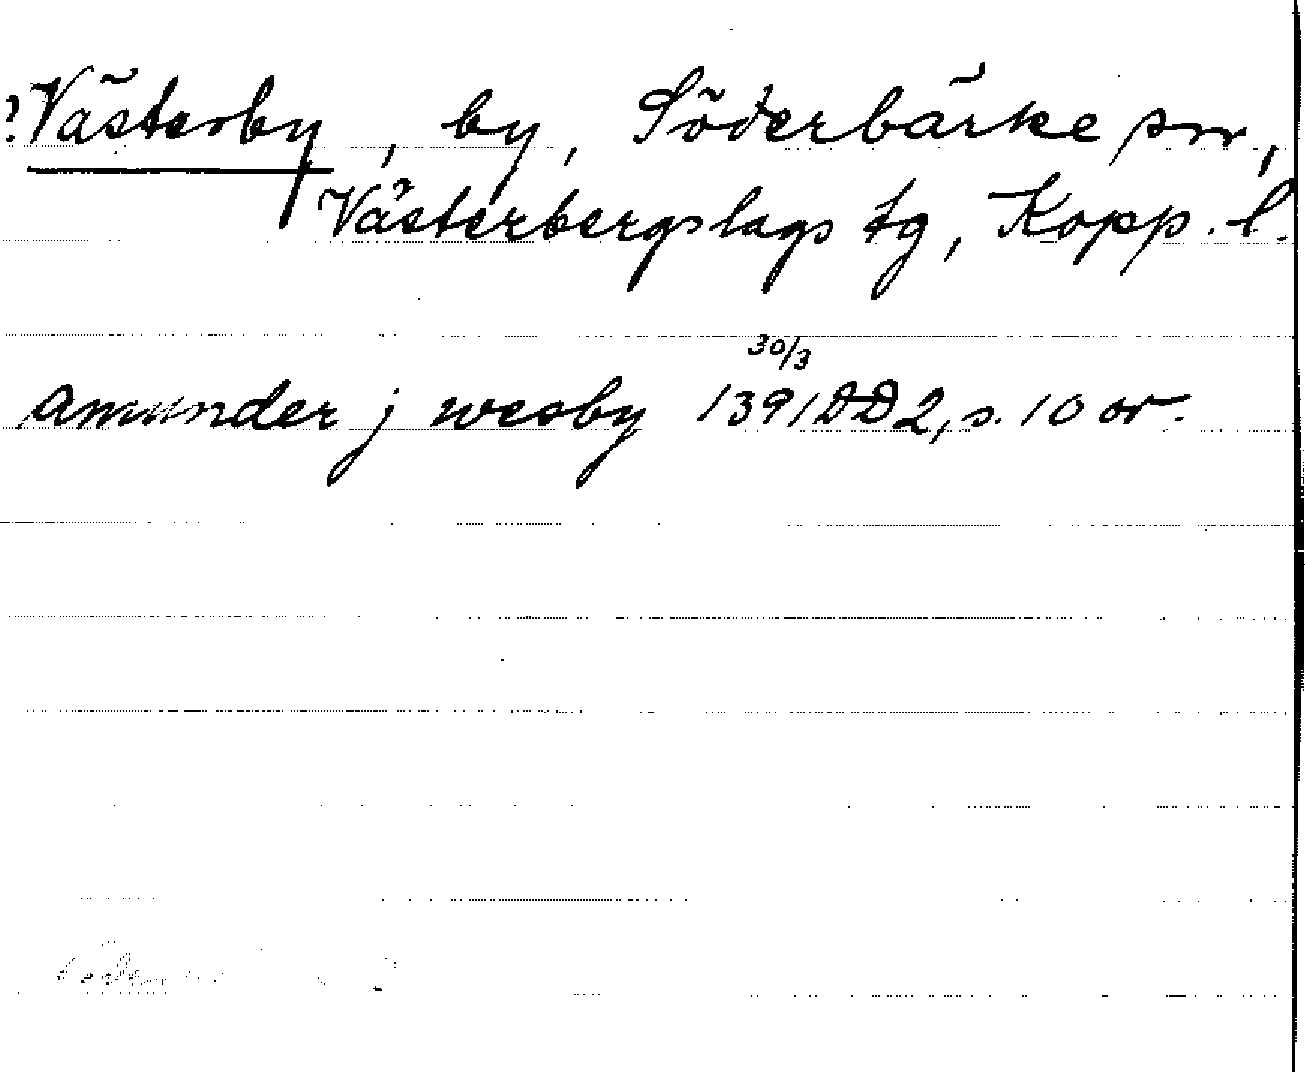 ? Västerby, by, Söderbärke sn,
Västerbergslags tg, Kopp. l.
30/3
amunder j wesby 1391 DD2, s. 10 or.